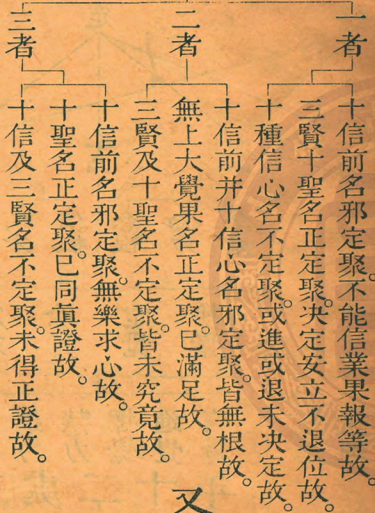 一者
十信前名邪定聚。不能信業果報等故。
三賢十聖名正定聚。决定安立不退位故。
十種信心名不定聚。或進或退未决定故。
二者
十信前并十信心名邪定聚。皆無根故。
無上大覺果名正定聚。已滿足故。
三賢及十聖名不定聚。皆未究竟故。
三者
十信前名邪定聚。無樂求心故。
十聖名正定聚。已同眞證故。
十信及三賢名不定聚。未得正證故。
又